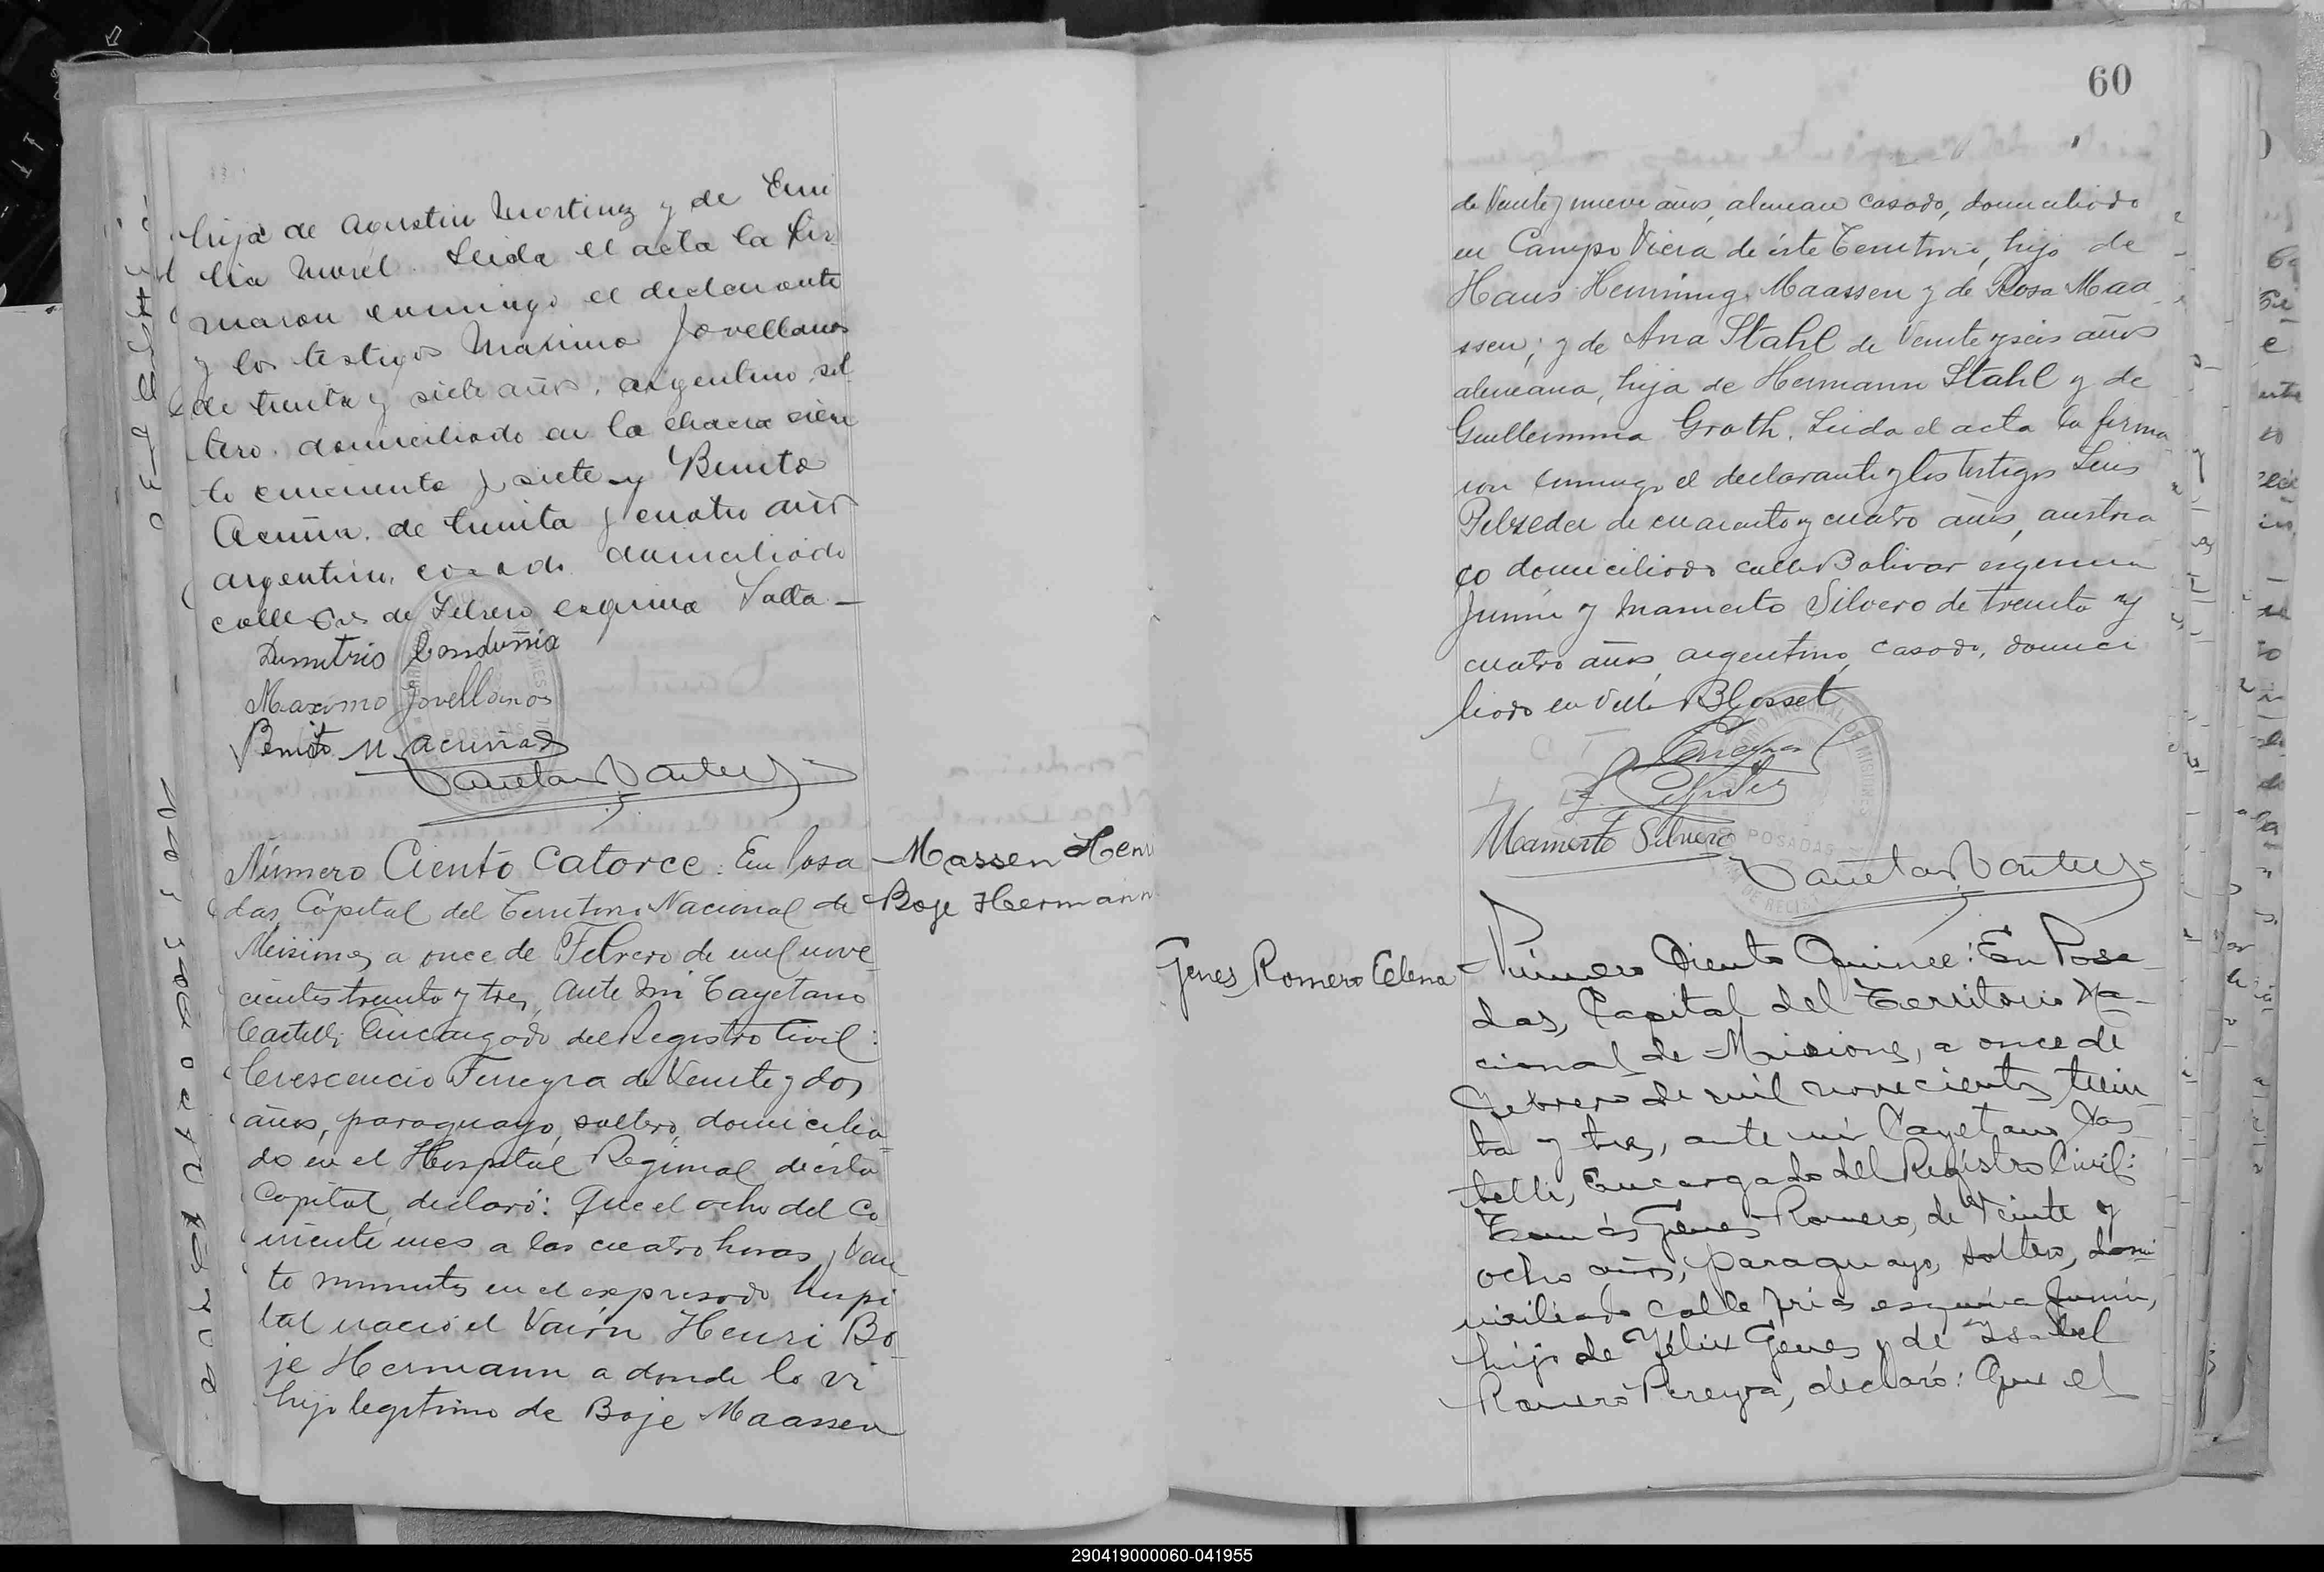 hija de Agustin Martinez y de Emi
lia Morel. Leida el acta la fir
maron conmigo el declarante
y los testigos Maximo Jovellanos
de treinta y siete años, argentino, sol
tero, domiciliado en la chacra cien
to cincuenta y siete y Benito
Acuña, de treinta y cuatro años
argentino, casado domiciliado
calle de Febrero esquina Salta —
Demetrio Conduñia
Maximo Jovellanos
Benito M. Acuña
Número Ciento Catorce: En Posa
das, Capital del Territorio Nacional de
Misiones, a once de Febrero de mil nove
cientos treinta y tres, ante mi Cayetano
Castelli Encargado del Registro Civil:
Crescencio Ferreyra de Veinte y dos
años, paraguayo, soltero, domicilia
do en el Hospital Regional de ésta
Capital, declaró: Que el ocho del Co
rriente mes a las cuatro horas, Vein
te minutos en el expresado Hospi
tal nació el Varón Henri Bo
je Hermann a donde lo vi
hijo legitimo de Boje Maassen
Massen Henri
Boje Hermann
60
de Veinte y nueve años, aleman casado, domiciliado
en Campo Viera de éste Territorio, hijo de
Hans Henning Maassen y de Rosa Maa
ssen; y de Ana Stahl de Veinte y seis años
alemana, hija de Hermann Stahl y de
Guillermina Groth. Leida el acta la firma
ron conmigo el declarante y los testigos Luis
de cuarenta y cuatro años, austria
co domiciliado calle Bolivar esquina
Junin y Mamerto Silvero de treinta y
cuatro años, argentino, casado, domici
liado en Villa Blosset
Mamerto Silvero
Genes Romero Elena
Número Ciento Quince: En Posa
das, Capital del Territorio Na-
cional de Misiones, a once de
Febrero de mil novecientos trein
ta y tres, ante mi Cayetano Cas
telli, Encargado del Registro Civil:
Tomás Genes Romero, de Veinte y
ocho años, paraguayo, soltero, domi
ciliado calle Frias esquina Junin,
hijo de Félix Genes y de Isabel
Romero Pereyra, declaró: Que el
290419000060-041955